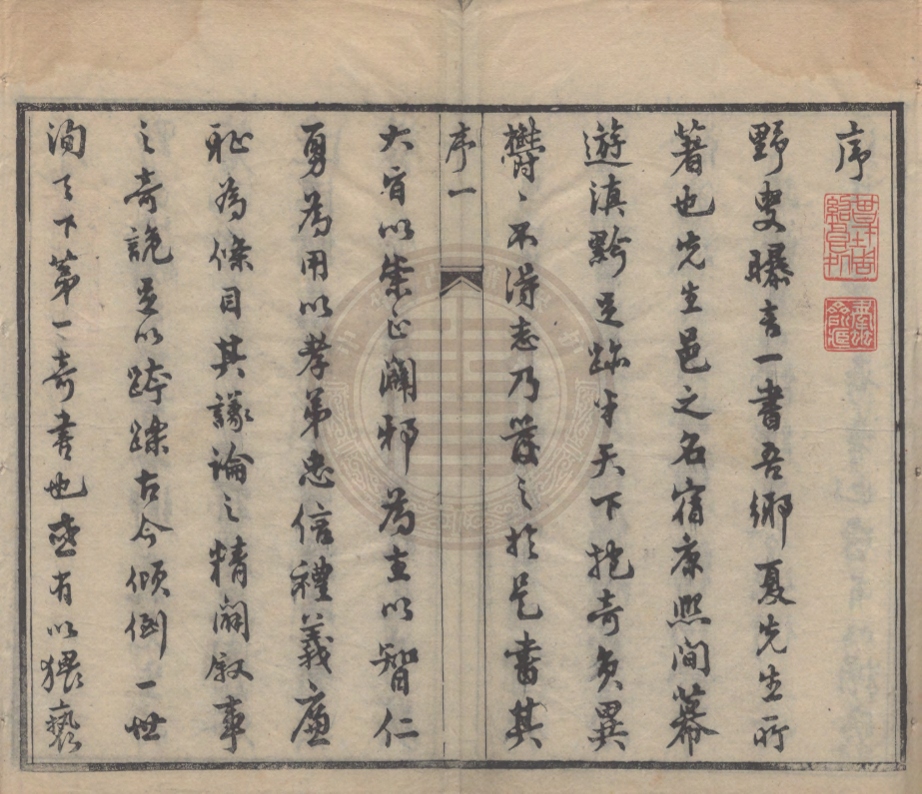 序
野叟曝言一書吾鄉夏先生所
著也先生邑之名宿康熙間幕
遊滇黔足跡半天下抱奇負異
鬱〻不得志乃發之於是書其
序一
大旨以崇正闢邪為主以智仁
勇為用以孝弟忠信禮義廉
恥為條目其議論之精闢叙事
之奇詭足以跨躒古今傾倒一世
洵天下第一奇書也或有以猥褻